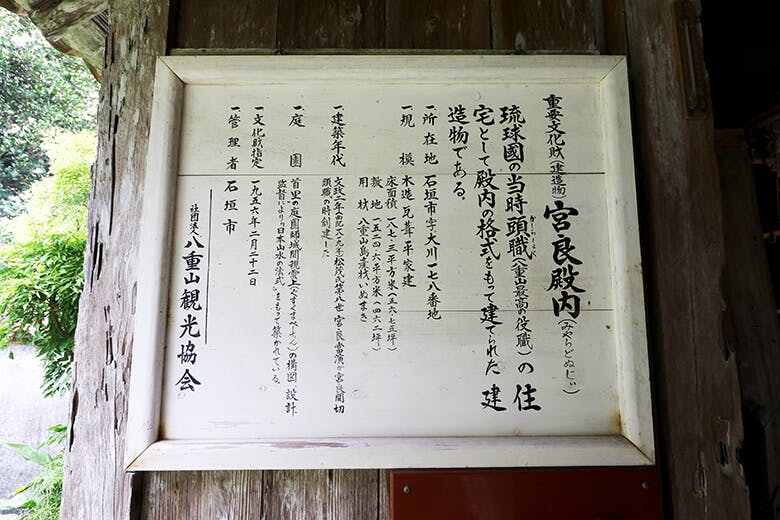 重要文化財(建造物) 宮良殿内(みやらどぬじぃ)
琉球國の当時頭職(八重山最高の役職)の住
宅として殿内の格式をもって建てられた建
造物である。
一所在地 石垣市字大川一七八番地
一規模 木造瓦葺平家建
床面積 一八七・三平方米(五六・七五坪)
敷地 一五二四・六平方米(四六二坪)
用材 八重山島産槙いぬまき
一建築年代 文政二年(西紀一八一九年)松茂氏第八世宮良當演が宮良間切
頭職の時創建した
一庭園 首里の庭園師城間親雲上(ぐすくまぺーちん)の構図設計
監督により日本山水の法式をもって築かれている。
一文化財指定 一九五六年二月二十二日
一管理者 石垣市
社団法人八重山観光協会